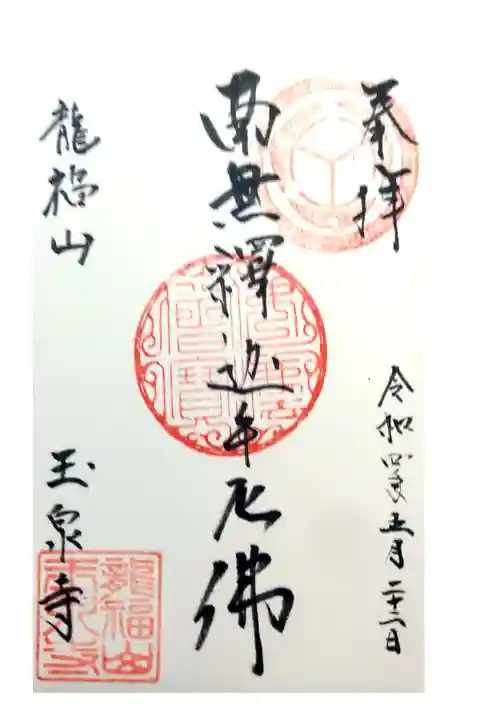 奉拝
令和四年五月二十二日
南無釋迦牟尼佛
龍福山
玉泉寺